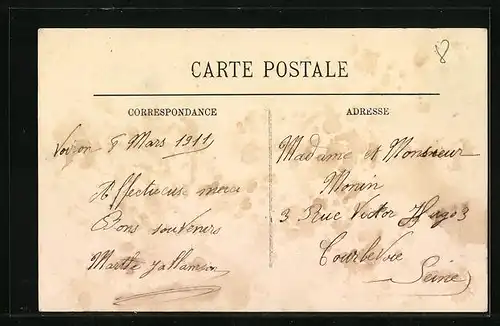 8
CARTE POSTALE
CORRESPONDANCE
ADRESSE
Voiron 8 Mars 1911
Affectueuse merci
Bons souvenirs
Marthe
Madame et Monsieur
Monin
3 Rue Victor Hugo 3
Courbevoie
Seine